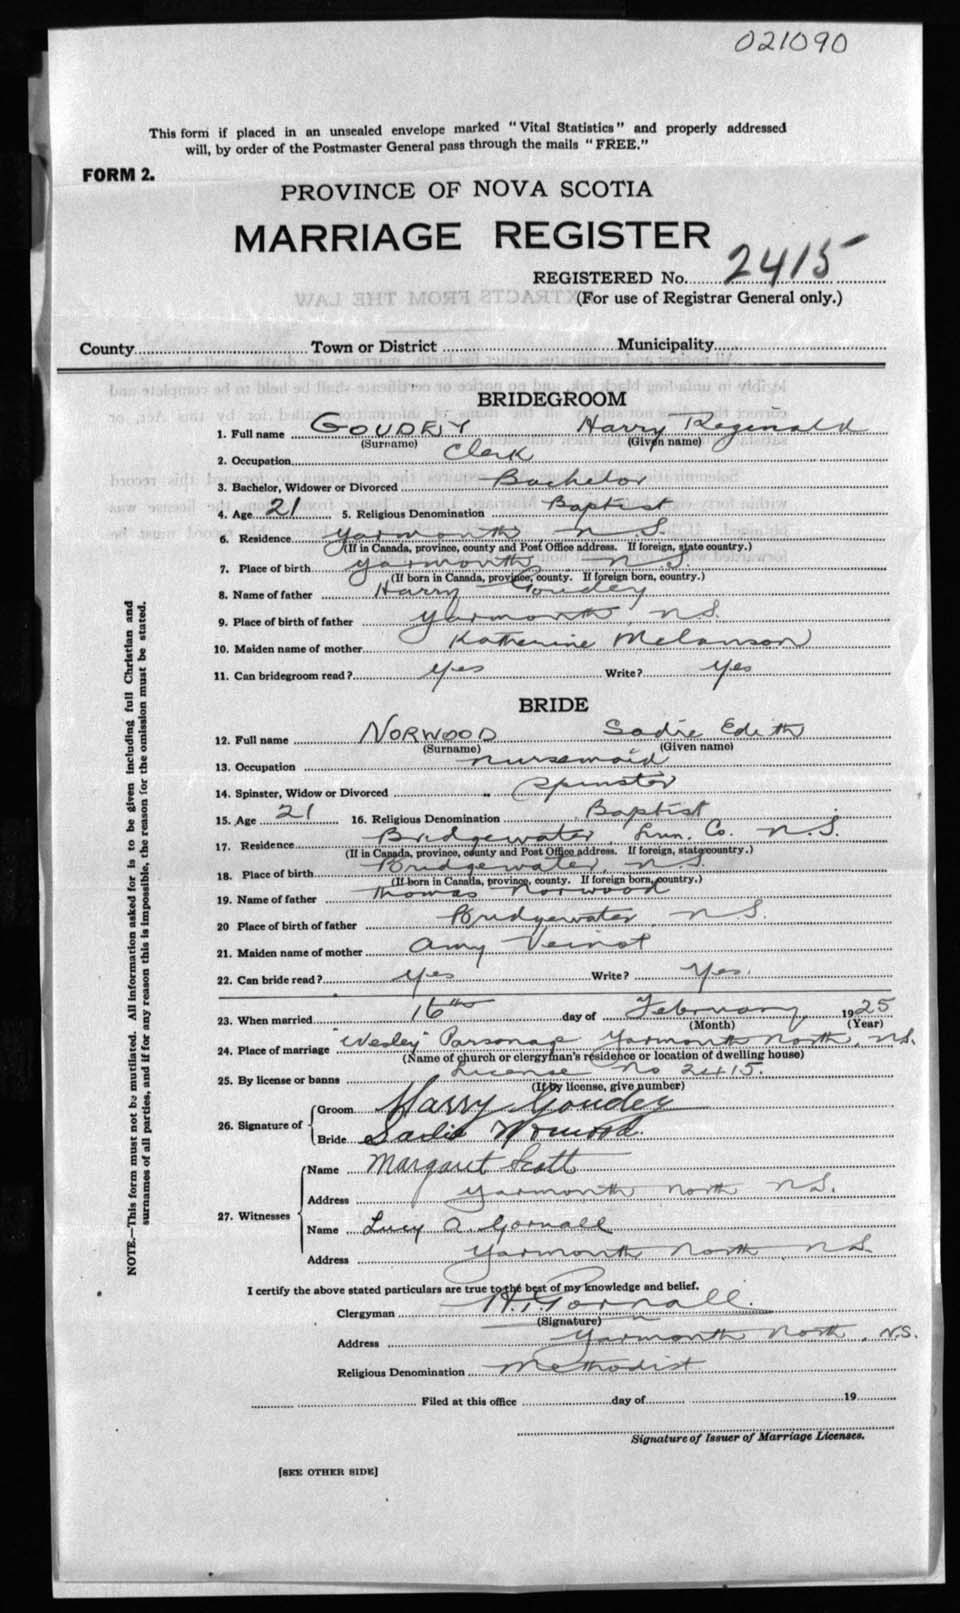 021090
This form if placed in an unsealed envelope marked "Vital Statistics" and properly addressed
will, by order of the Postmaster General pass through the mails "FREE."
FORM 2.
PROVINCE OF NOVA SCOTIA
MARRIAGE REGISTER
REGISTERED No. 2415
(For use of Registrar General only.)
EXTRACTS FROM THE LAW
County Town or District Municipality
BRIDEGROOM
1. Full name GOUDEY Harry Reginald
(Surname) (Given name)
2. Occupation Clerk
3. Bachelor, Widower or Divorced Bachelor
4. Age 21 5. Religious Denomination Baptist
6. Residence Yarmouth N.S.
(If in Canada, province, county and Post Office address. If foreign, state country.)
7. Place of birth Yarmouth, N.S.
(If born in Canada, province, county. If foreign born, country.)
8. Name of father Harry Goudey
9. Place of birth of father Yarmouth, N.S.
10. Maiden name of mother Katherine Melanson
11. Can bridegroom read? Yes Write? Yes
BRIDE
12. Full name NORWOOD Sadie Edith
(Surname) (Given name)
13. Occupation Nursemaid
14. Spinster, Widow or Divorced Spinster
15. Age 21 16. Religious Denomination Baptist
17. Residence Bridgewater, Lun. Co. N.S.
(If in Canada, province, county and Post Office address. If foreign, state country.)
18. Place of birth Bridgewater, N.S.
(If born in Canada, province, county. If foreign born, country.)
19. Name of father Thomas Norwood
20 Place of birth of father Bridgewater, N.S.
21. Maiden name of mother Amy Veinot
22. Can bride read? Yes Write? Yes.
23. When married 16th day of February, 1925
(Month) (Year)
24. Place of marriage "Wesley" Parsonage Yarmouth North, N.S.
(Name of church or clergyman's residence or location of dwelling house)
25. By license or banns License No 2415.
(If by license, give number)
26. Signature of
Groom Harry Goudey
Bride Sadie Norwood.
27. Witnesses
Name Margaret Scott
Address Yarmouth North N.S.
Name Lucy A. Gornall
Address Yarmouth North, N.S.
I certify the above stated particulars are true to the best of my knowledge and belief.
Clergyman Gornall.
(Signature)
Address Yarmouth North, N.S.
Religious Denomination Methodist
Filed at this office day of 19
Signature of Issuer of Marriage Licenses.
[SEE OTHER SIDE]
NOTE.—This form must not be mutilated. All information asked for is to be given including full Christian and
surnames of all parties, and if for any reason this is impossible, the reason for the omission must be stated.